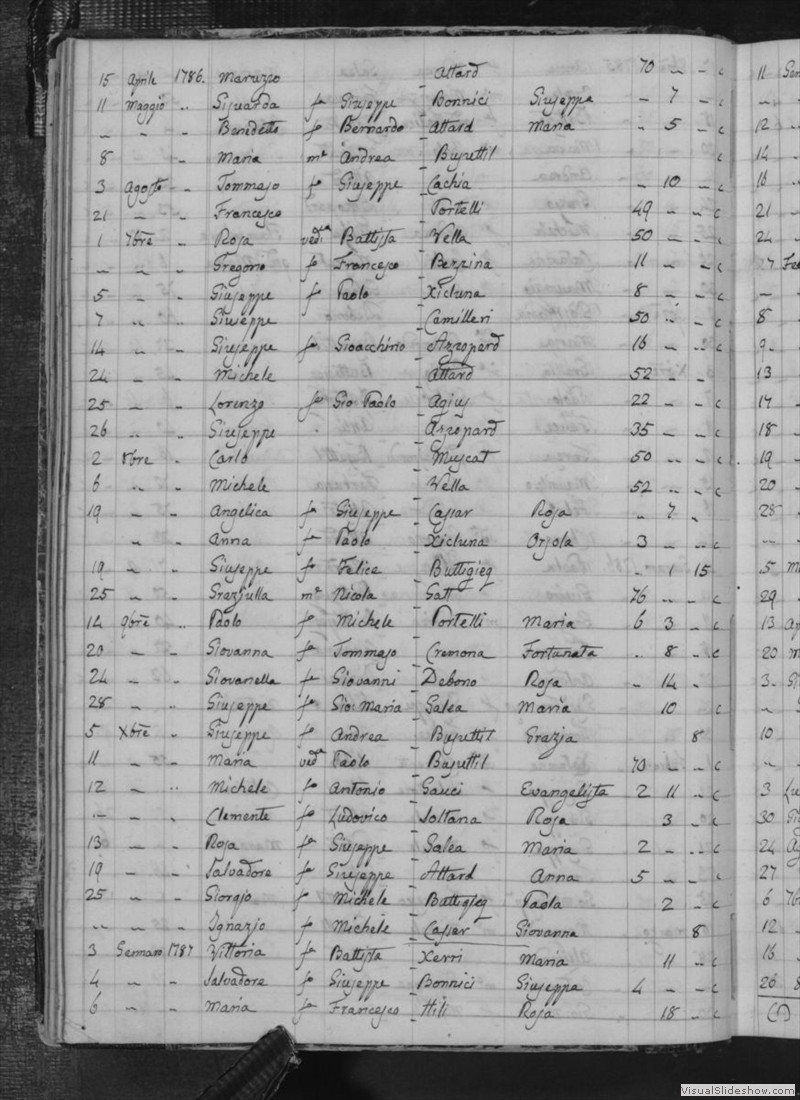 15 Aprile 1786. Maruzzo Attard 70 " - c
11 Maggio " Sijuarda fa Giuseppe Bonnici Giuseppa - 7 - c
- - - Benedetti fo Bernardo Attard Maria - 5 - c
8 " Maria me Andrea Busuttil c
3 Agosto - Tommaso fo Giuseppe Cachia - 10 - c
21 - - Francesco Portelli 49 - - c
1 7bre - Rosa veda Battista Vella 50 - - c
" " " Gregorio fo Francesco Bezzina 11 - - c
5 - - Giuseppe fo Paolo Xicluna 8 - - c
7 " " Giuseppe Camilleri 50 " - c
14 - - Giuseppe fo Gioacchino Azzopard 16 - - c
24 - - Michele Attard 52 - - c
25 - - Lorenzo fo Gio Paolo Agius 22 - - c
26 " " Giuseppe Azzopard 35 - - c
2 8bre " Carlo Muscat 50 " - c
6 " - Michele Vella 52 - - c
19 - - Angelica fa Giuseppe Cassar Rosa " 7 "
" - Anna fa Paolo Xicluna Orsola 3 - " c
19 - - Giuseppe fo Felice Buttigieg " 1 15
25 - - Grazjulla me Nicola Gatt 76 " " c
14 9bre " Paolo fo Michele Portelli Maria 6 3 - c
20 - - Giovanna fa Tommaso Cremona Fortunata . 8 - c
24 - - Giovanella fa Giovanni Debono Rosa - 14 -
28 " " Giuseppe fo Gio: Maria Galea Maria 10 c
5 Xbre - Giuseppe fo Andrea Busuttil Grazja 8
11 - - Maria veda Paolo Busuttil 70 - - c
12 - " Michele fo Antonio Gauci Evangelista 2 11 - c
- - " Clemente fo Ludovico Soltana Rosa 3 - c
13 - - Rosa fa Giuseppe Galea Maria 2 - " c
19 - - Salvadore fo Giuseppe Attard Anna 5 - - c
25 " - Giorgio fo Michele Buttigieg Paola 2 - c
" " " Ignazio fo Michele Cassar Giovanna 8
3 Gennaro 1787 Vittoria fa Battista Xerri Maria 11 - c
4 - - Salvadore fo Giuseppe Bonnici Giuseppa 4 - - c
6 - - Maria fa Francesco Hili Rosa 18 - c
11
12
14
16
21
24
27
8
9
13
17
18
19
20
28
5
29
13
20
3
10
3
30
24
27
6
12
16
26
VisualSlideshow.com